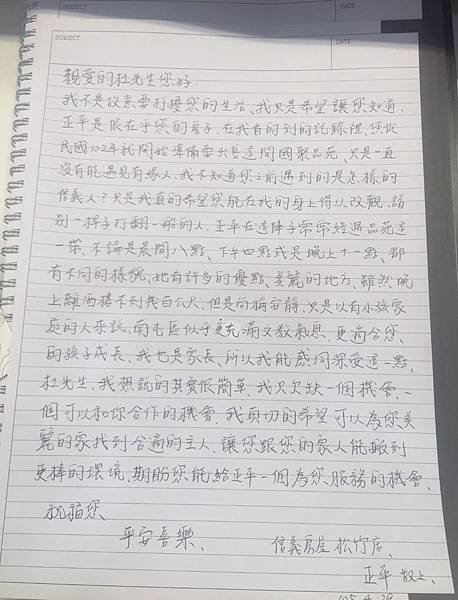 SUBJECT
DATE
SUBJECT
DATE
親愛的杜先生您好
我不是故意要打擾您的生活、我只是希望讓您知道、
正平是很在乎您的房子、在我看的到的記錄裡、您從
民國102年就開始準備要出售這間國聚品苑、只是一直
沒有能遇見有緣人、我不知道您之前遇到的是怎樣的
信義人?只是我真的希望您能在我的身上得以改觀、請
別一桿子打翻一船的人、正平在這陣子常常經過品苑這
一帶、不論是晨間八點、下午四點或是晚上十一點、都
有不同的樣貌、她有許多的優點、美麗的地方、雖然晚
上離酒樓不到幾百公尺、但是尚稱安靜、只是以有小孩家
庭的人來說、南屯區似乎更充滿文教氣息、更適合您、
的孩子成長、我也是家長、所以我能感同深受這一點、
杜先生、我想說的其實很簡單、我只欠缺一個機會、一
個可以和你合作的機會、我真切的希望可以為您美
麗的家找到合適的主人、讓您跟您的家人能搬到
更棒的環境、期盼您能給正平一個為您服務的機會、
祝福您、
平安喜樂、
信義房屋 松竹店、
正平 敬上、
105.4.29